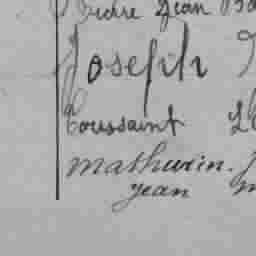 Pierre Jean Ba
Joseph
Toussaint
Mathurin. J
Jean m